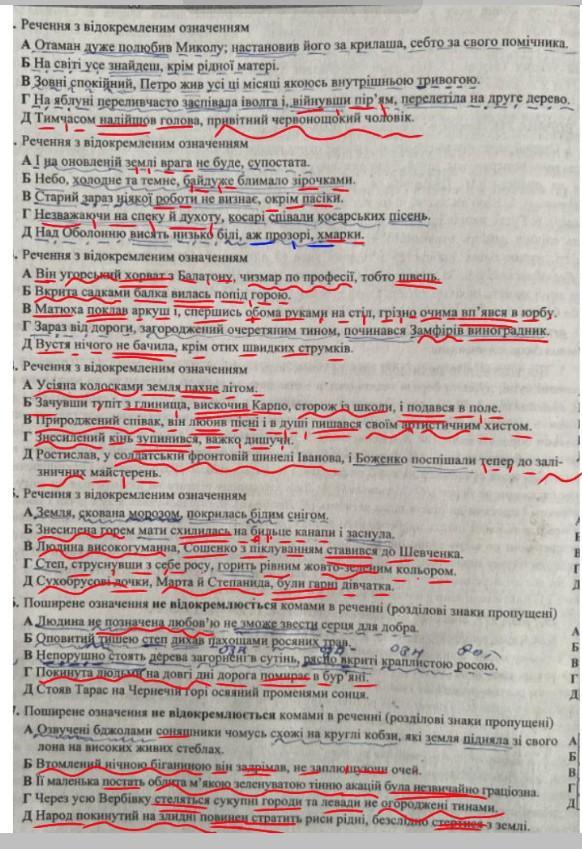 . Речення з відокремленим означенням
А Отаман дуже полюбив Миколу; настановив його за крилаша, себто за свого помічника.
Б На світі усе знайдеш, крім рідної матері.
В Зовні спокійний, Петро жив усі ці місяці якоюсь внутрішньою тривогою.
Г На яблуні переливчасто заспівала іволга і, війнувши пір’ям, перелетіла на друге дерево.
Д Тимчасом надійшов голова, привітний червонощокий чоловік.
. Речення з відокремленим означенням
А І на оновленій землі врага не буде, супостата.
Б Небо, холодне та темне, байдуже блимало зірочками.
В Старий зараз ніякої роботи не визнає, окрім пасіки.
Г Незважаючи на спеку й духоту, косарі співали косарських пісень.
Д Над Оболонню висять низько білі, аж прозорі, хмарки.
. Речення з відокремленим означенням
А Він угорський хорват з Балатону, чизмар по професії, тобто швець.
Б Вкрита садками балка вилась попід горою.
В Матюха поклав аркуш і, спершись обома руками на стіл, грізно очима вп’явся в юрбу.
Г Зараз від дороги, загороджений очеретяним тином, починався Замфірів виноградник.
Д Вустя нічого не бачила, крім отих швидких струмків.
. Речення з відокремленим означенням
А Усіяна колосками земля пахне літом.
Б Зачувши тупіт з глинища, вискочив Карпо, сторож із школи, і подався в поле.
В Природжений співак, він любив пісні і в душі пишався своїм артистичним хистом.
Г Знесилений кінь зупинився, важко дишучи.
Д Ростислав, у солдатській фронтовій шинелі Іванова, і Боженко поспішали тепер до залі-
зничних майстерень.
. Речення з відокремленим означенням
А Земля, скована морозом, покрилась білим снігом.
Б Знесилена горем мати схилилась на бильце канапи і заснула.
В Людина високогуманна, Сошенко з піклуванням ставився до Шевченка.
Г Степ, струснувши з себе росу, горить рівним жовто-зеленим кольором.
Д Сухобрусові дочки, Марта й Степанида, були гарні дівчатка.
. Поширене означення не відокремлюється комами в реченні (розділові знаки пропущені)
А Людина не позначена любов’ю не зможе звести серця для добра.
Б Оповитий тишею степ дихав пахощами росяних трав.
В Непорушно стоять дерева загорнені в сутінь, рясно вкриті краплистою росою.
Г Покинута людьми на довгі дні дорога помирає в бур’яні.
Д Стояв Тарас на Чернечій горі осяяний променями сонця.
7. Поширене означення не відокремлюється комами в реченні (розділові знаки пропущені)
А Озвучені бджолами соняшники чомусь схожі на круглі кобзи, які земля підняла зі свого
лона на високих живих стеблах.
Б Втомлений нічною біганиною він задрімав, не заплющуючи очей.
В Її маленька постать облита м’якою зеленуватою тінню акацій була незвичайно граціозна.
Г Через усю Вербівку стеляться сукупні городи та левади не огороджені тинами.
Д Народ покинутий на злидні повинен стратить риси рідні, безслідно стертися з землі.